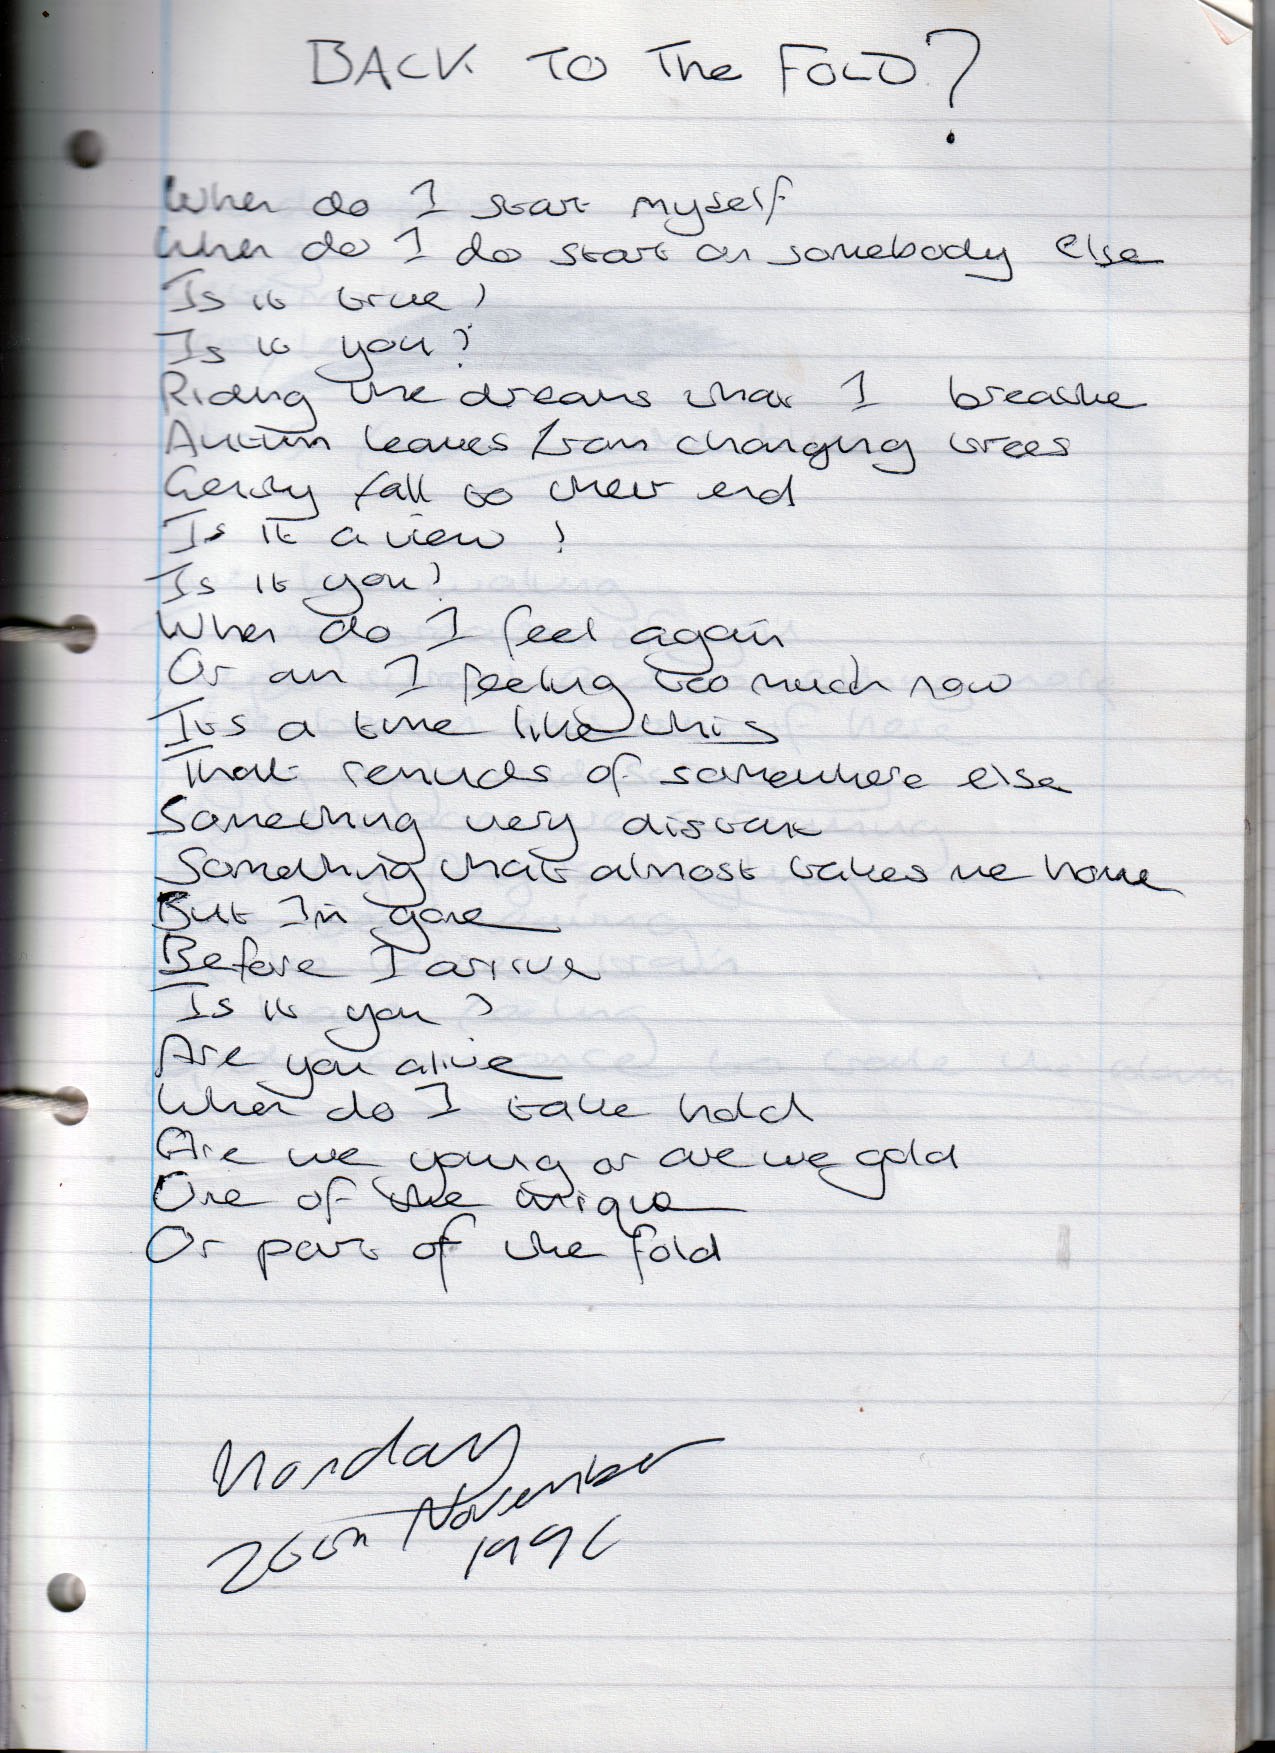 BACK TO The FOLD?
When do I start myself
When do I do start on somebody else
Is it true?
Is it you?
Riding the dreams that I breathe
Autum leaves from changing trees
Gently fall to their end
Is it a view?
Is it you?
When do I feel again
Or am I feeling too much now
Its a time like this
That reminds of somewhere else
Something very distant
Something that almost takes me home
But Im gone
Before I arrive
Is it you?
Are you alive
When do I take hold
Are we young or are we gold
One of the unique
Or part of the fold
Monday
26th November
1996